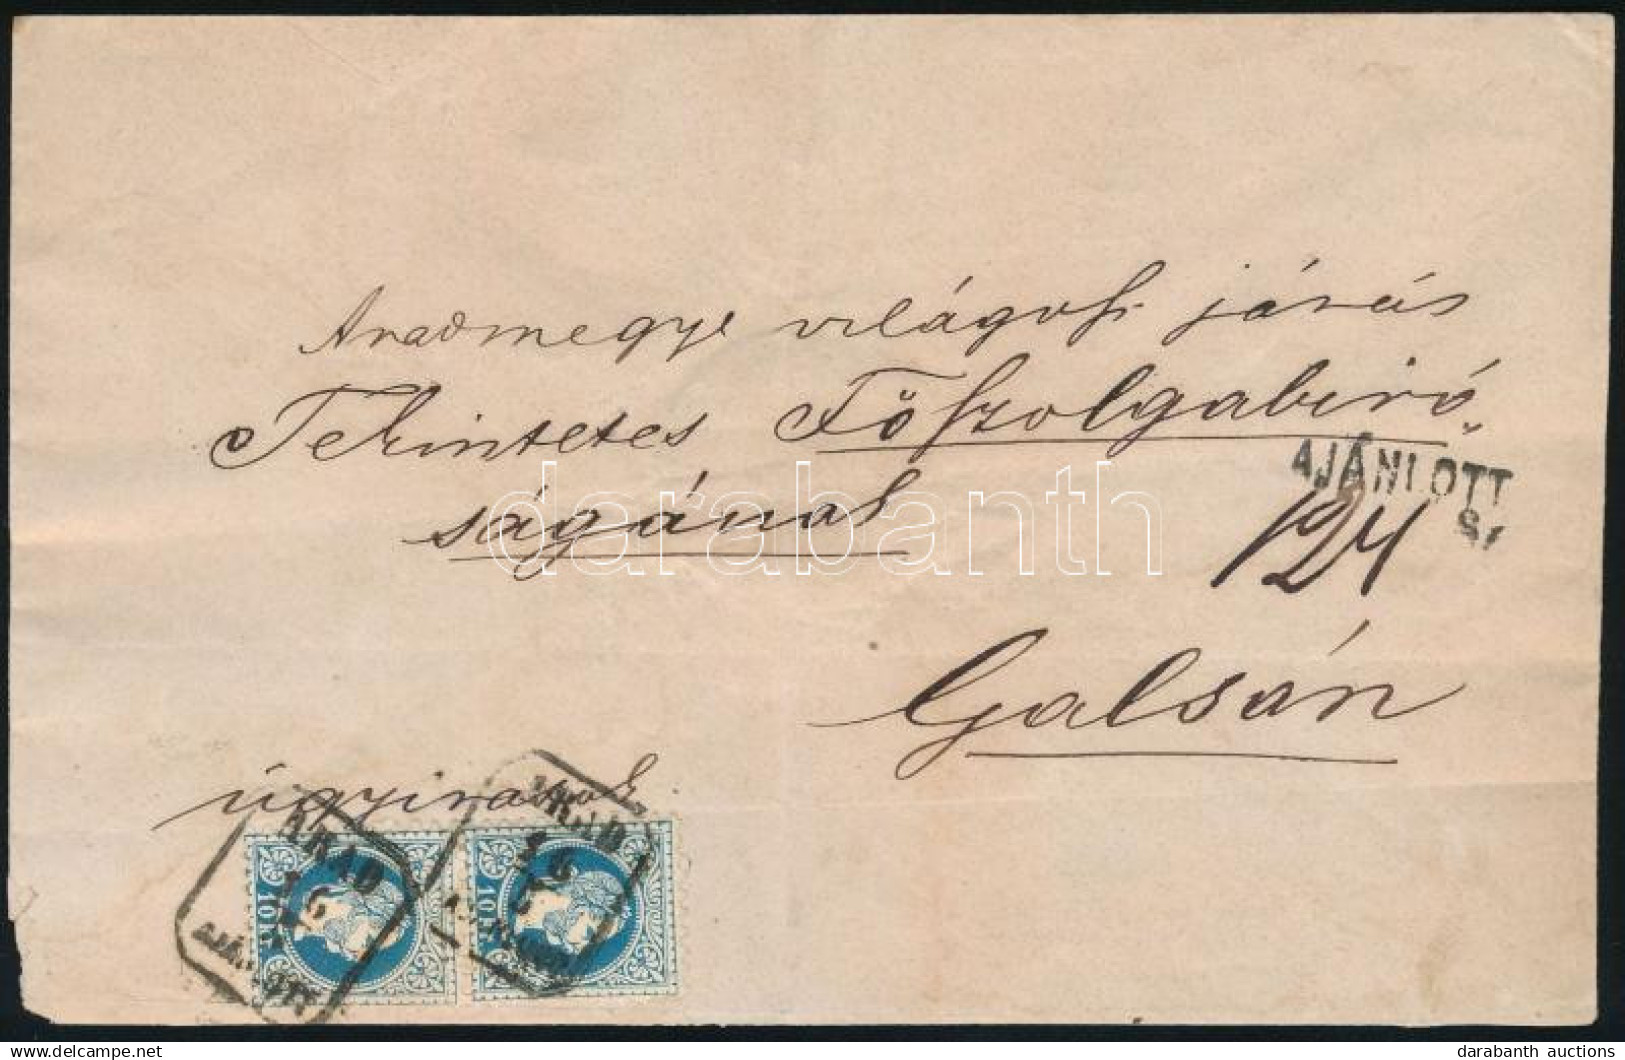 Aradmegye világosi járás
Tekintetes Főszolgabiró„
ságának
AJÁNLOTT
124
Galsán
ügyiratok
ARAD
AJÁNLOTT
10 kr
ARAD
10 kr
darabanth
www.delcampe.net
darabanth auctions